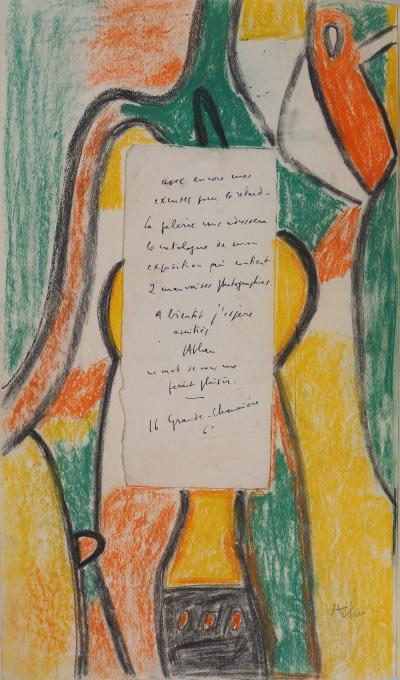 avec encore mes
excuses pour le retard -
la galerie vous adressera
le catalogue de mon
exposition qui contient
2 mauvaises photographies.
A bientôt j'espère
amitiés
JAtlan
un mot de vous me
ferait plaisir.
16 Grande-Chaumière
6e
Atlan